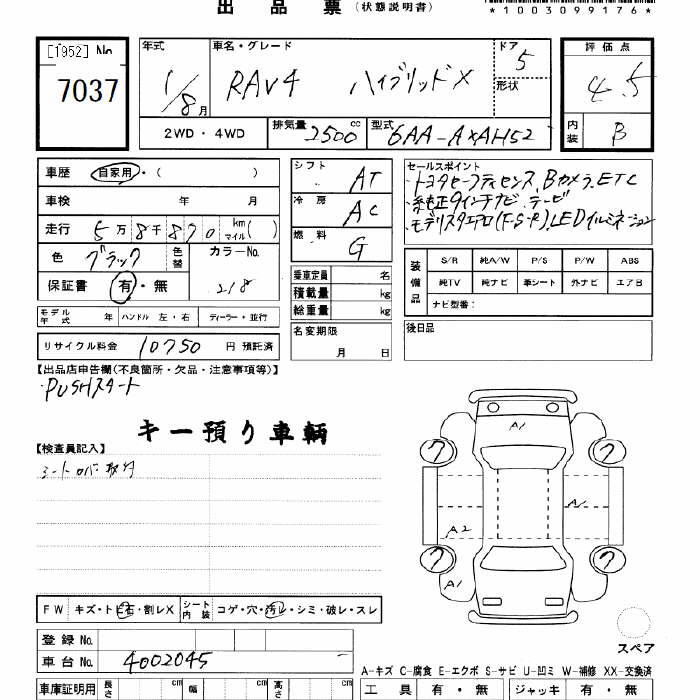 出品票（状態説明書）
*1003099176*
[1952] No.
7037
年式 1/8月
車名・グレード RAV4 ハイブリッドX
ドア 5
形状
評価点 4.5
内装 B
2WD・4WD
排気量 2500cc
型式 6AA-AXAH52
車歴 自家用・（ ）
車検 年 月
走行 5万8千870 km マイル( )
色 ブラック 色替 カラーNo. 218
保証書 有・無
モデル年式 年 ハンドル 左・右 ディーラー・並行
リサイクル料金 10750 円 預託済
シフト AT
冷房 AC
燃料 G
乗車定員 名
積載量 kg
総重量 kg
名変期限 月 日
セールスポイント
・トヨタセーフティセンス、Bカメラ、ETC
・純正9インチナビ、テービ
・モデリスタエアロ(F・S・R)、LEDイルミネーション
装備品
S/R 純A/W P/S P/W ABS
純TV 純ナビ 革シート 外ナビ エアB
ナビ型番：
後日品
【出品店申告欄(不良箇所・欠品・注意事項等)】
・PUSHスタート
キー預り車輌
【検査員記入】
A1
7 7
A1
A2
7 7
A1
スペア
FW キズ・トビ石・割レX シート内装 コゲ・穴・汚レ・シミ・破レ・スレ
登録No.
車台No. 4002045
A-キズ C-腐食 E-エクボ S-サビ U-凹ミ W-補修 XX-交換済
車庫証明用 長さ cm 幅 cm 高さ cm
工具 有・無 ジャッキ 有・無